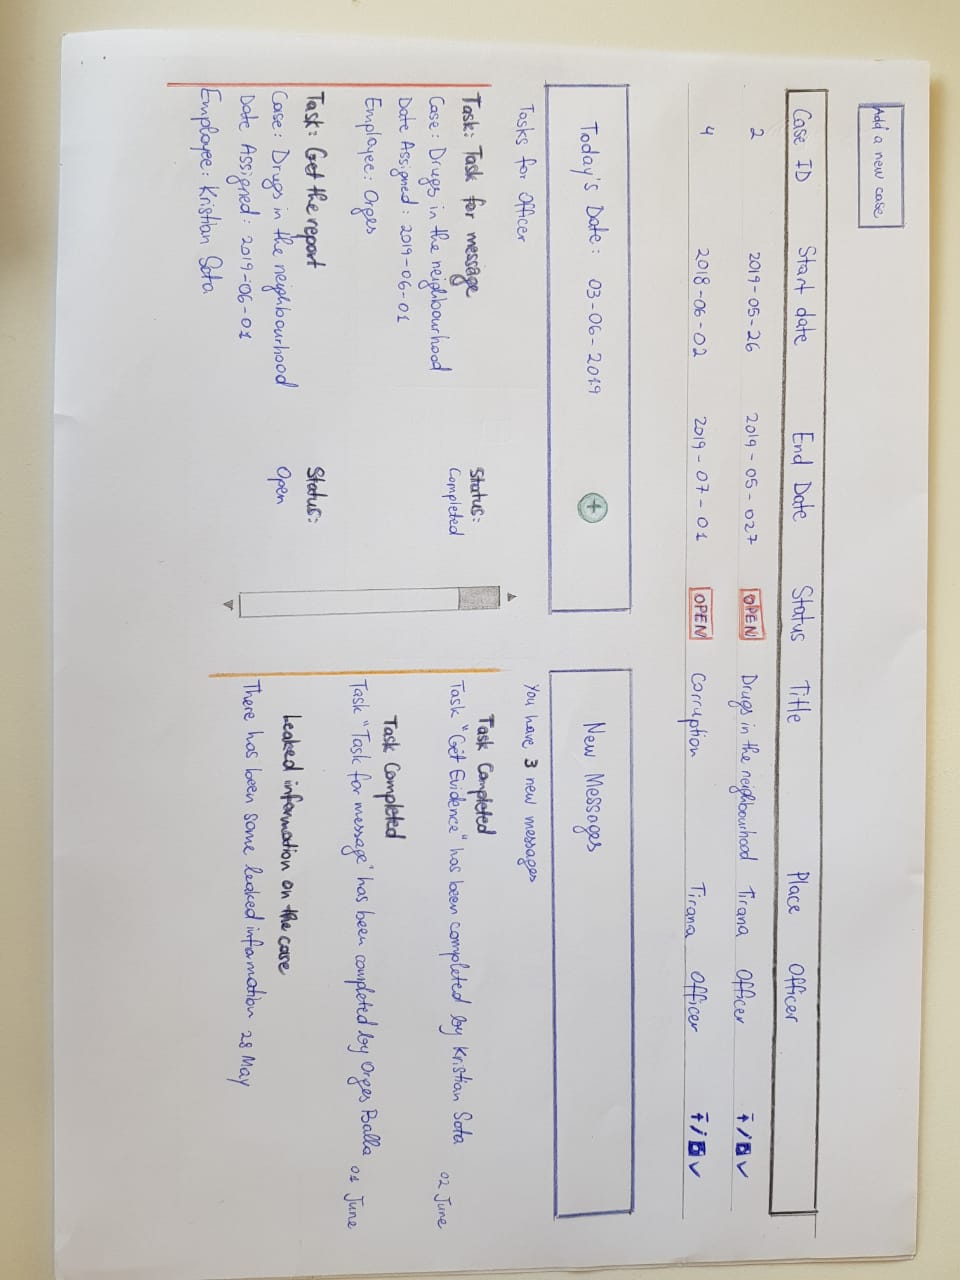 Add a new case
Case ID Start date End Date Status Title Place Officer
2 2019-05-26 2019-05-027 OPEN Drugs in the neighbourhood Tirana Officer
4 2018-06-02 2019-07-01 OPEN Corruption Tirana Officer
Today's Date: 03-06-2019 +
Tasks for Officer
Task: Task for message Status:
Case: Drugs in the neighbourhood Completed
Date Assigned: 2019-06-01
Employee: Orges
Task: Get the report Status:
Case: Drugs in the neighbourhood Open
Date Assigned: 2019-06-01
Employee: Kristian Sota
New Messages
You have 3 new messages
Task Completed
Task "Get Evidence" has been completed by Kristian Sota 02 June
Task Completed
Task "Task for message" has been completed by Orges Balla 01 June
Leaked information on the case
There has been some leaked information 28 May